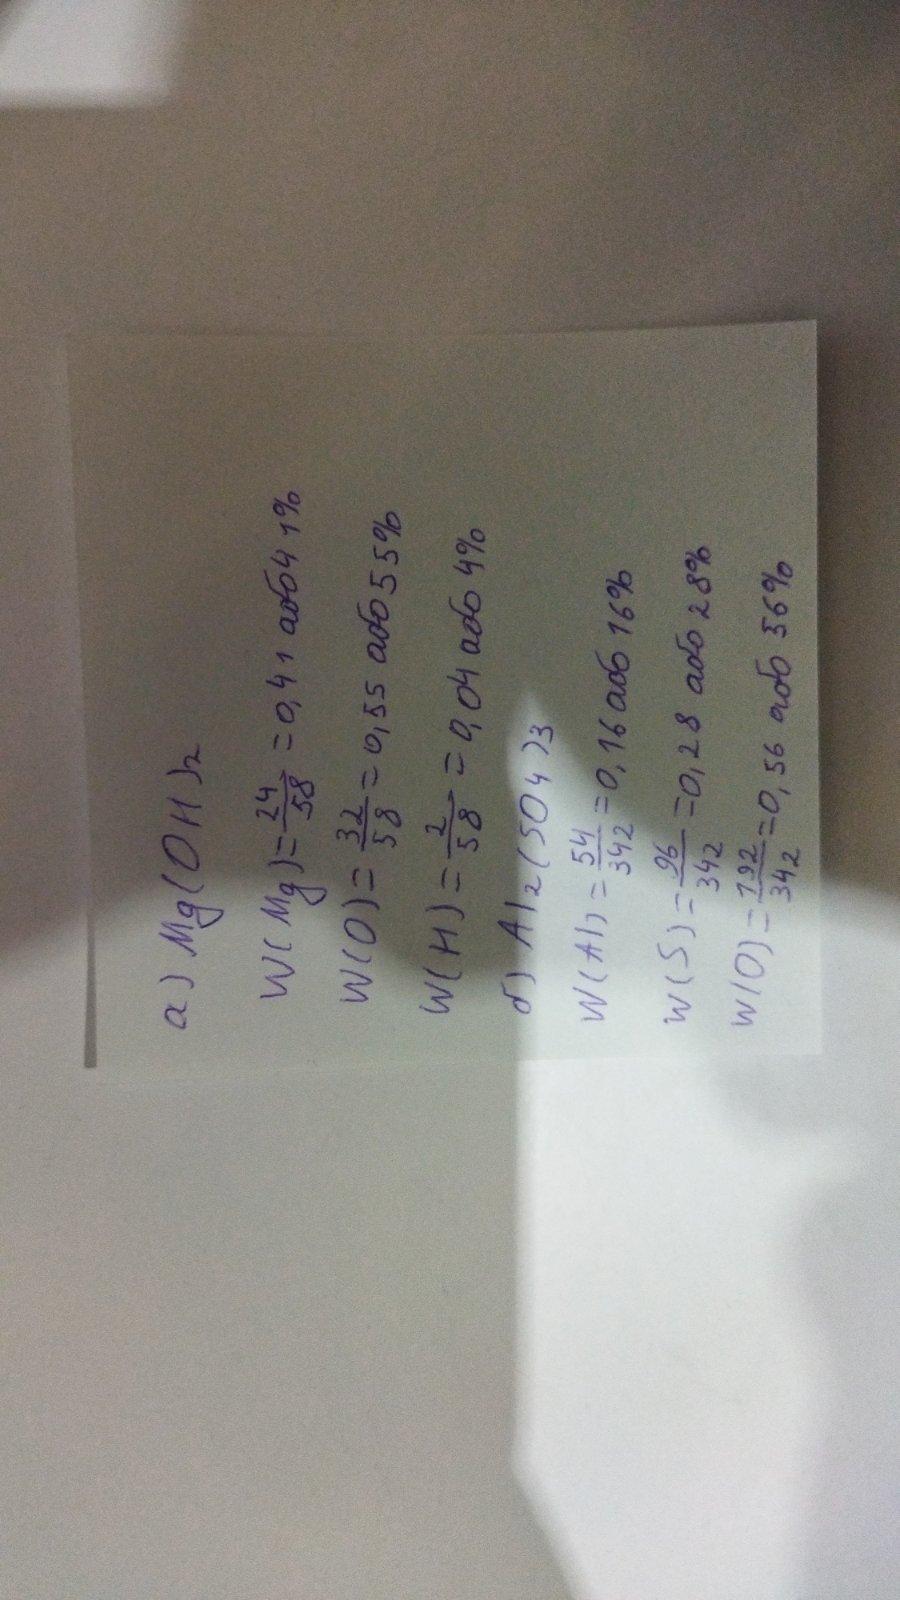 а) Mg(OH)2
W(Mg)=24/58=0,41 або 41%
W(O)=32/58=0,55 або 55%
W(H)=2/58=0,04 або 4%
б) Al2(SO4)3
W(Al)=54/342=0,16 або 16%
W(S)=96/342=0,28 або 28%
W(O)=192/342=0,56 або 56%